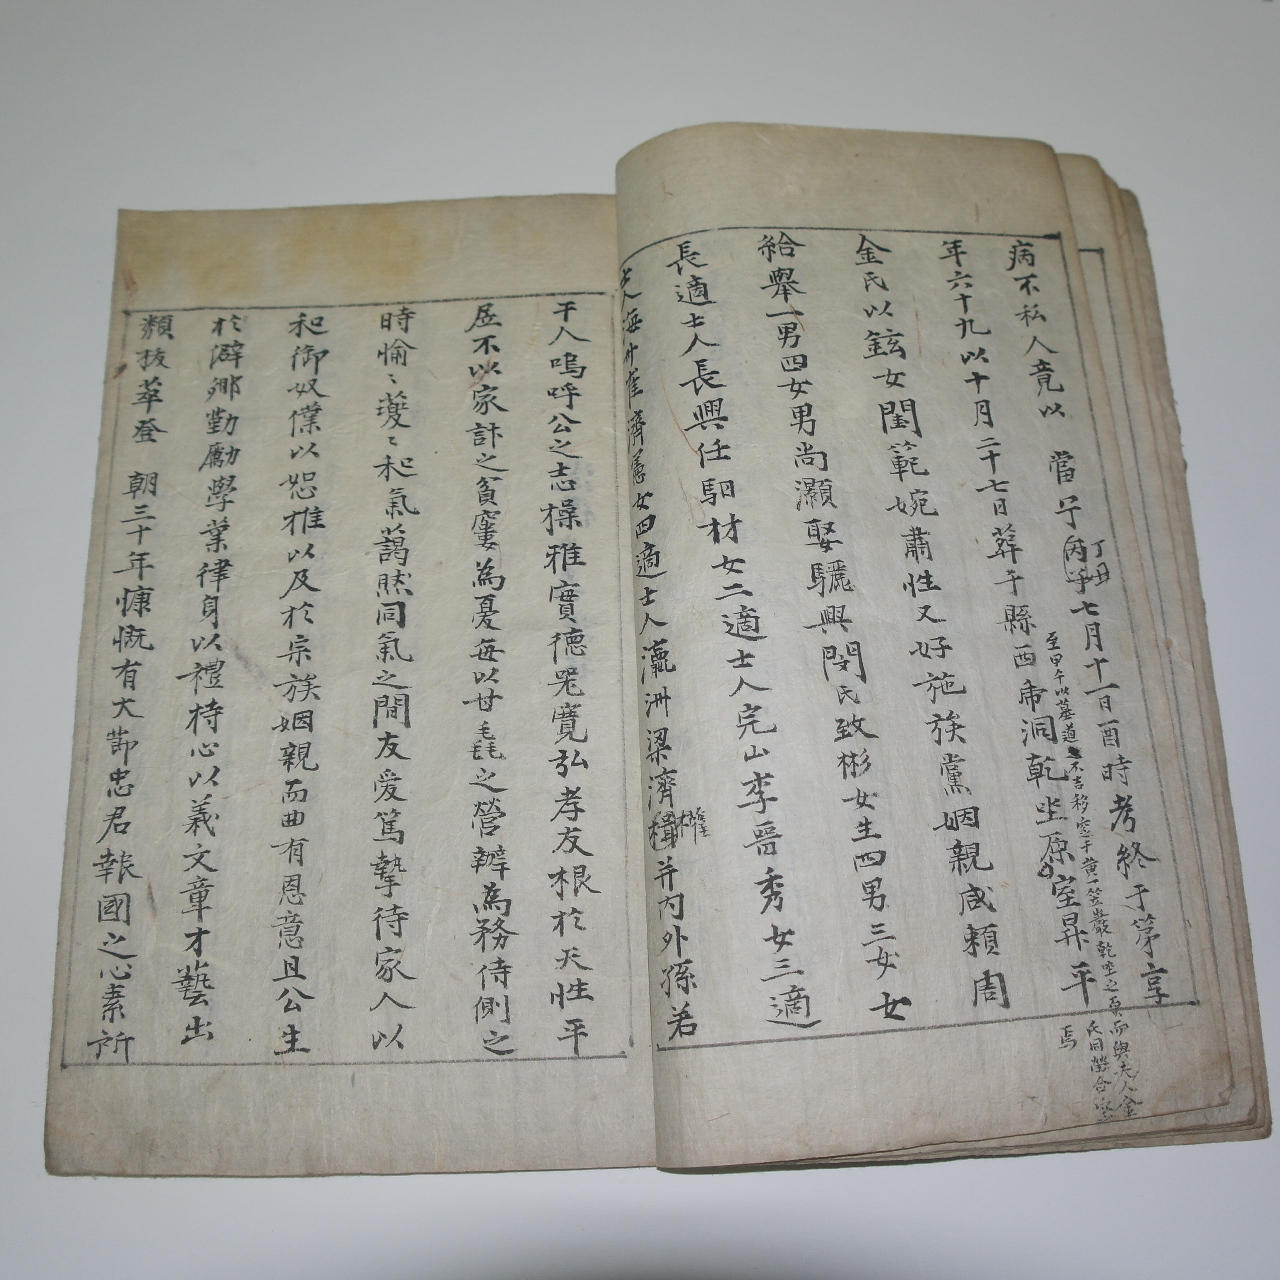 病不私人竟以 當宁丙子七月十一日酉時考終于第享
丁丑
年六十九以十月二十七日葬于縣西帝洞乾坐原室昇平
至甲午以墓道不吉移窆于黃笠巖乾坐之原而與夫人金
氏同塋合窆
焉
金氏以鉉女閨範婉肅性又好施族黨姻親咸賴周
給舉一男四女男尚灝娶驪興閔氏致彬女生四男三女女
長適士人長興任駟材女二適士人完山李晉秀女三適
士人海州崔濟憲女四適士人瀛洲梁濟楫并內外孫若
干人嗚呼公之志操雅實德器寬弘孝友根於天性平
居不以家計之貧窶為憂每以甘毳之營辦為務侍側之
時愉〻蘷〻和氣藹然同氣之間友爱篤摯待家人以
和御奴僕以恕推以及於宗族姻親而曲有恩意且公生
於僻鄉勤勵學業律身以禮持心以義文章才藝出
類拔萃登 朝三十年慷慨有大節忠君報國之心素所